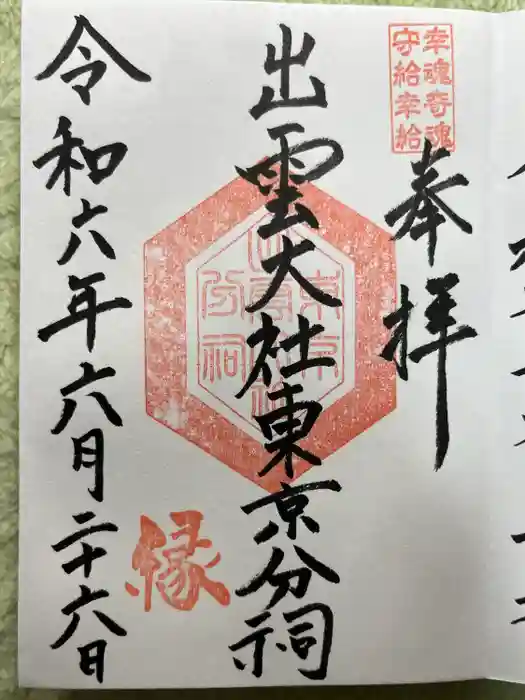 幸魂奇魂
守給幸給
奉拝
出雲大社東京分祠
縁
令和六年六月二十六日